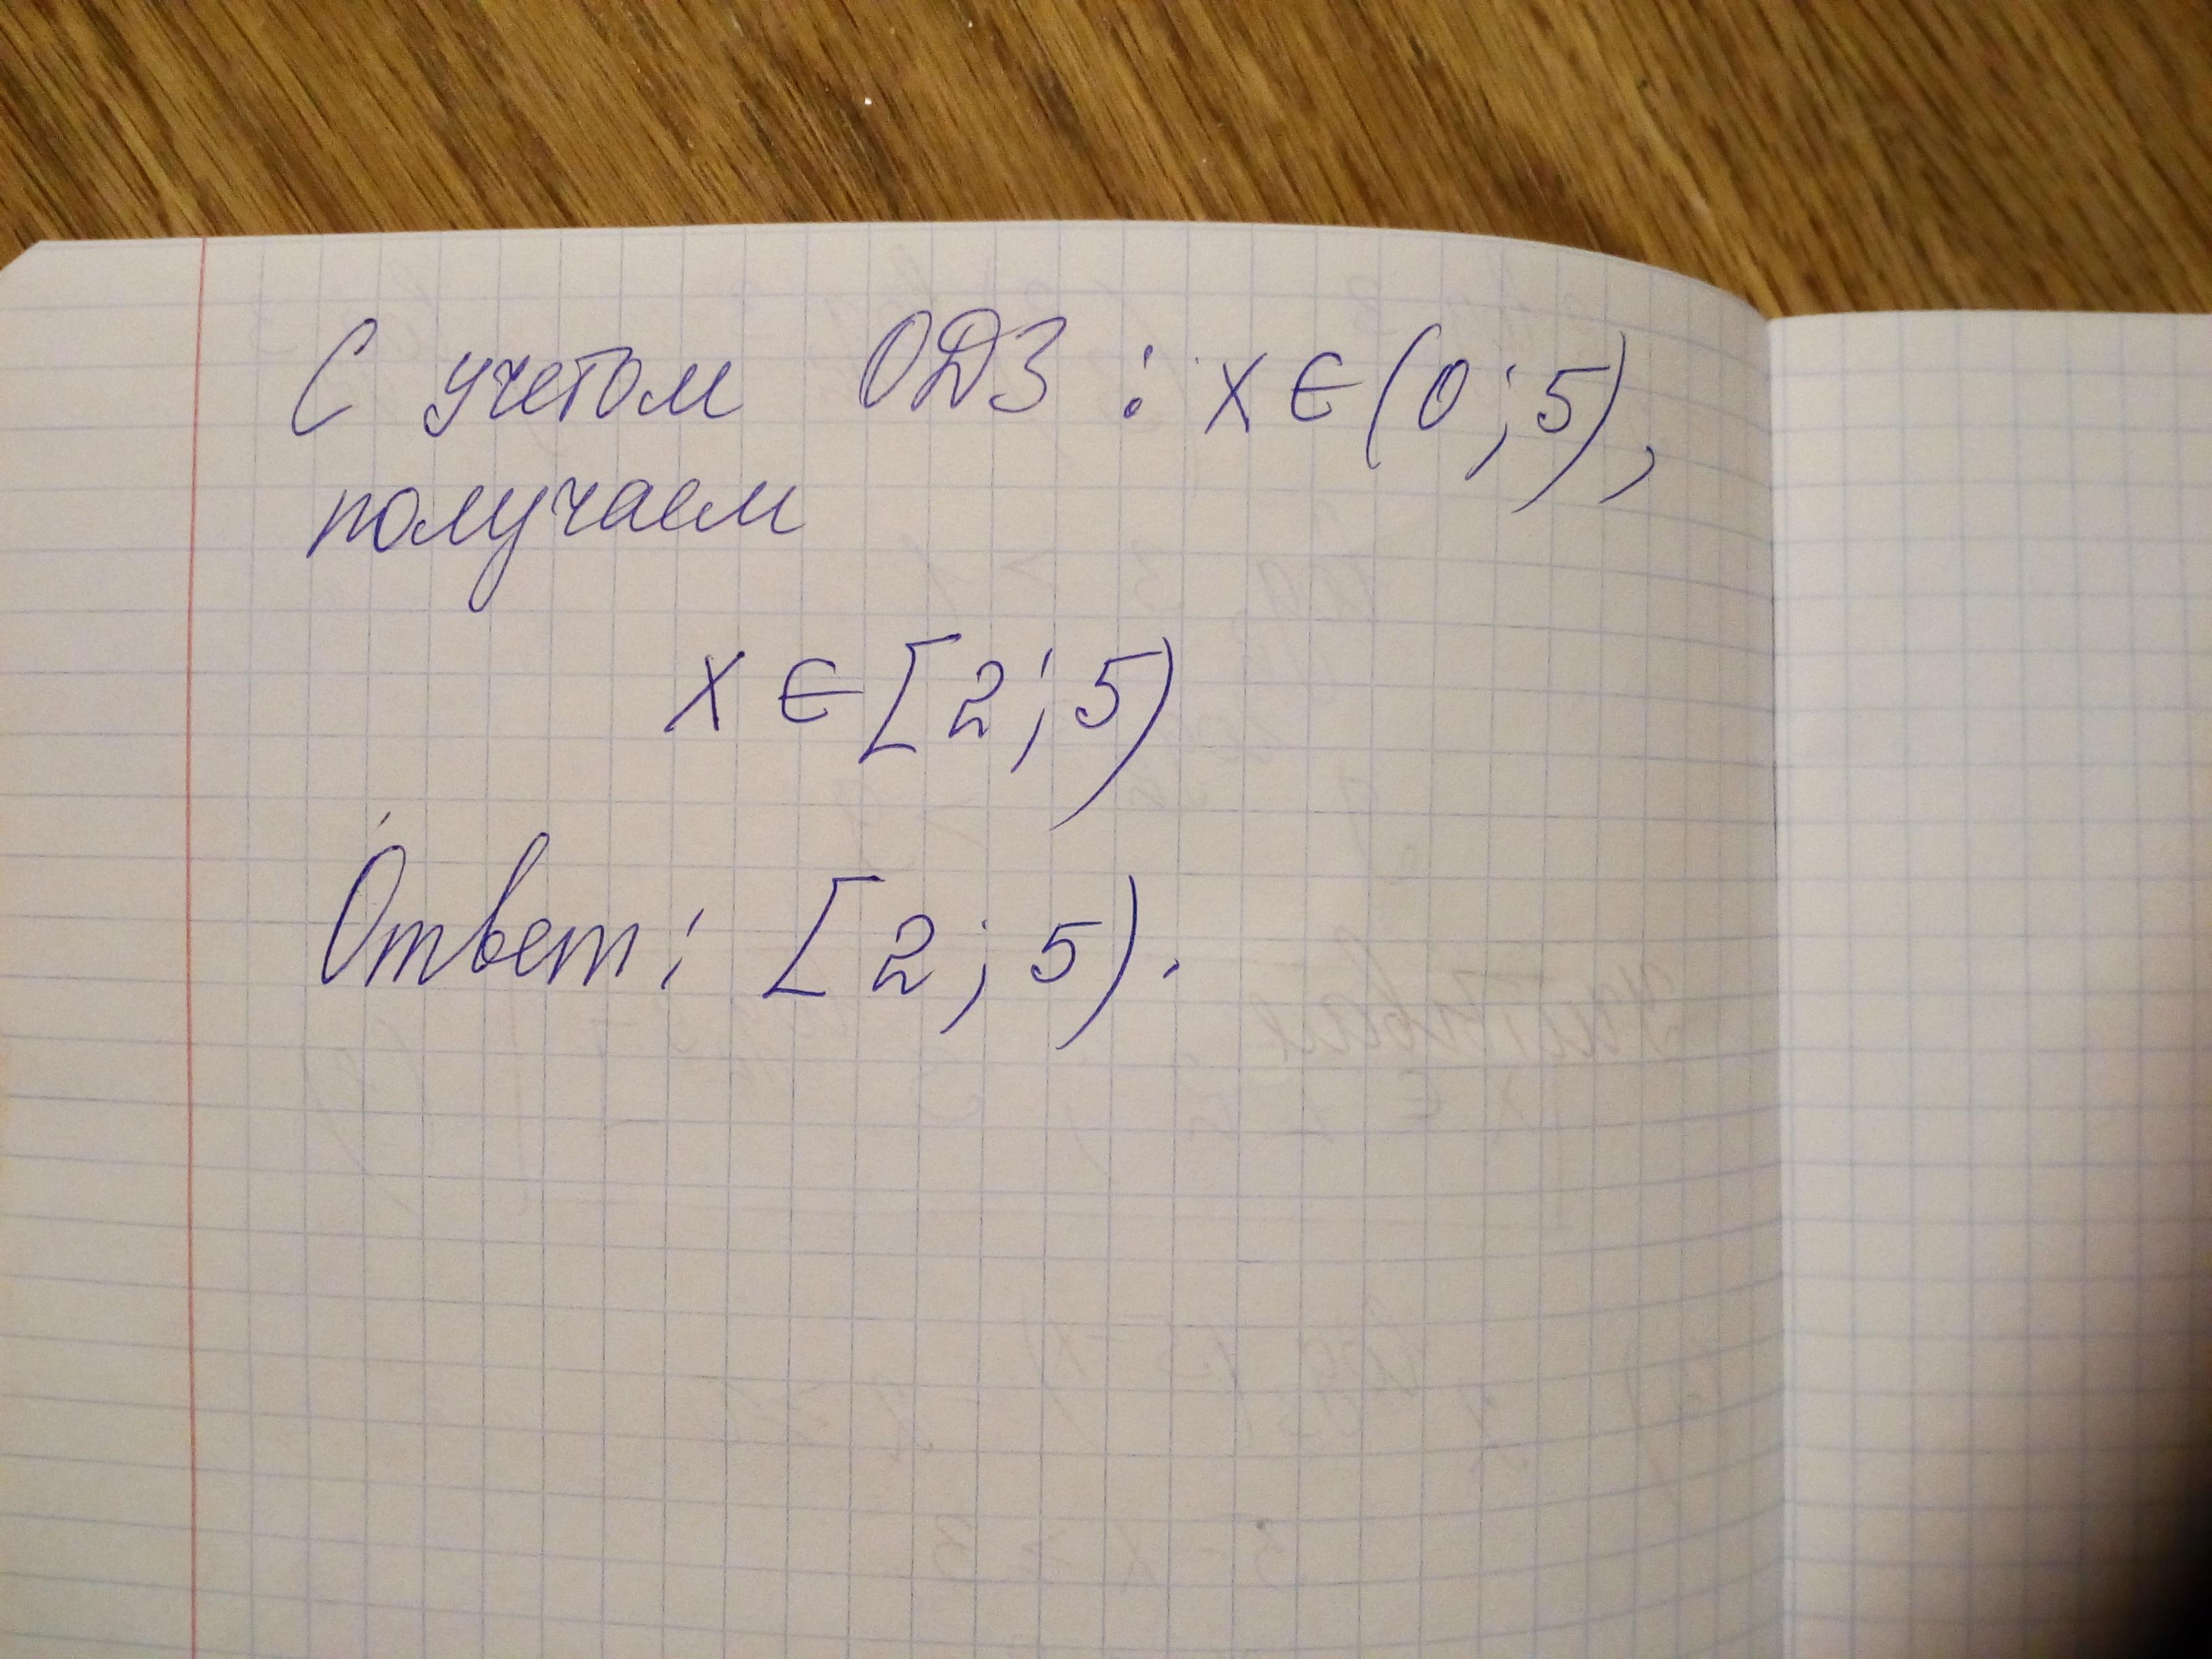 С учетом ОДЗ : x ∈ (0 ; 5),
получаем
x ∈ [2 ; 5)
Ответ: [2 ; 5).